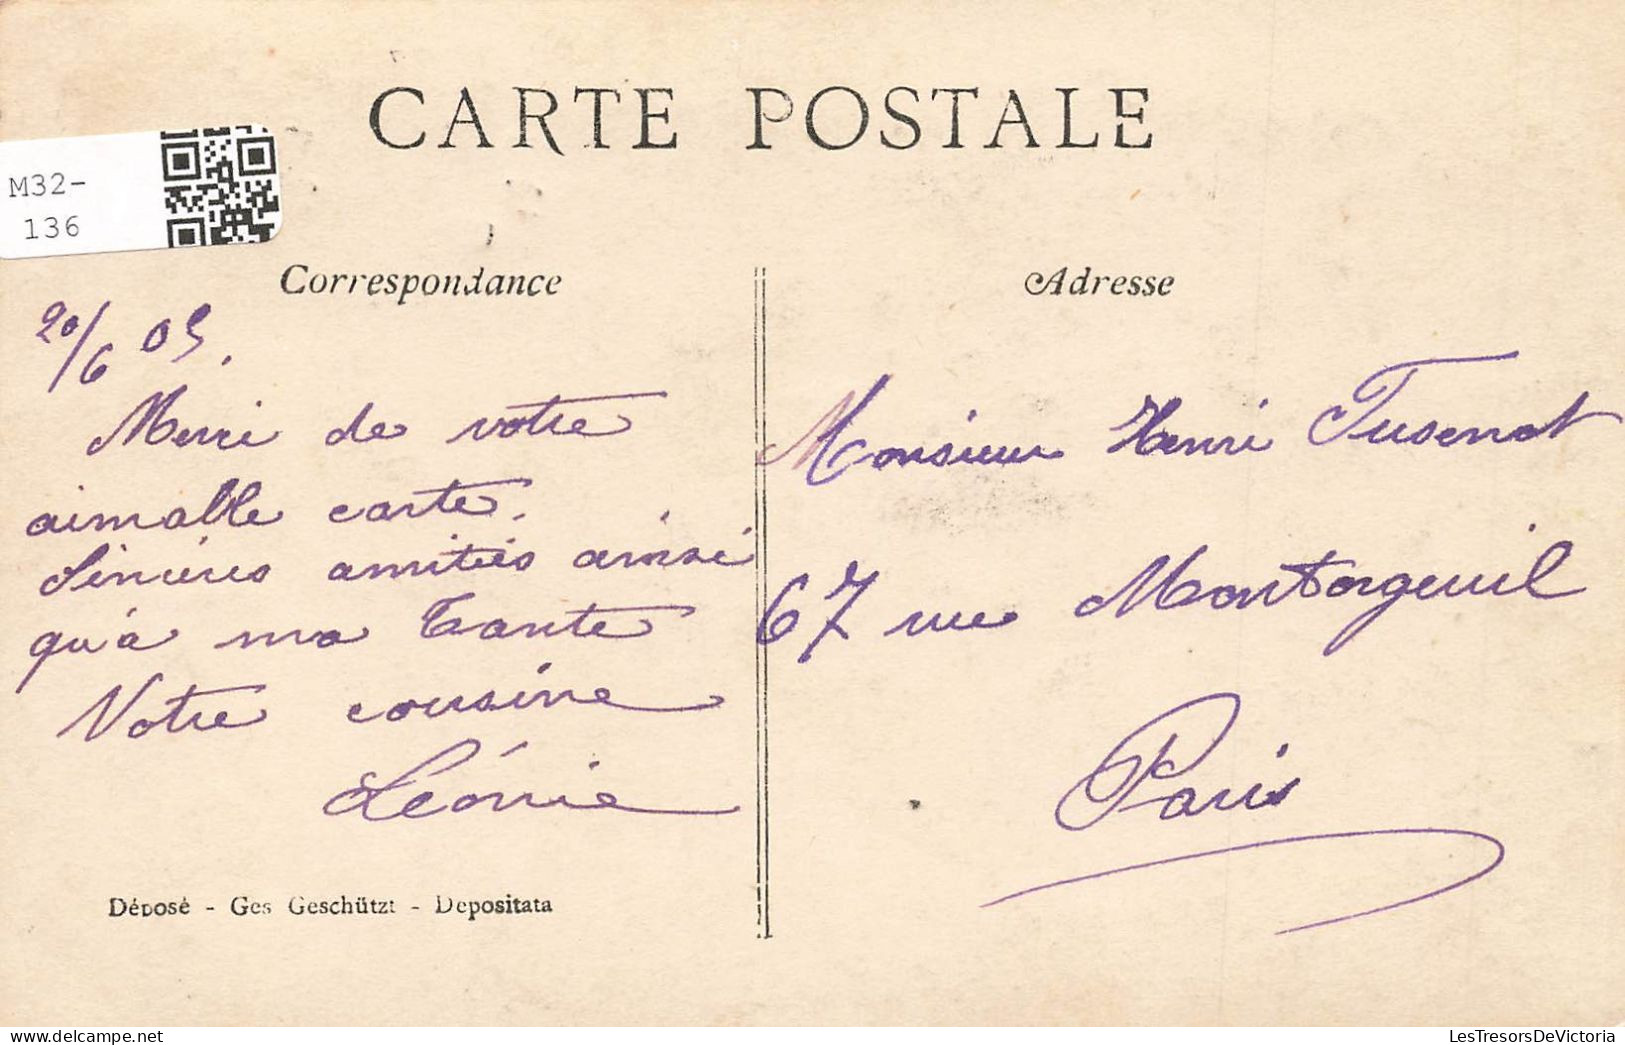 CARTE POSTALE
M32-
136
Correspondance
20/6 05.
Merci de votre
aimable carte.
Sincères amitiés ainsi
qu'à ma Tante
Votre cousine
Léonie
Déposé - Ges Geschützt - Depositata
Adresse
Monsieur Henri Tusenot
67 rue Montorgeuil
Paris
Delcampe.net
LesTresorsDeVictoria